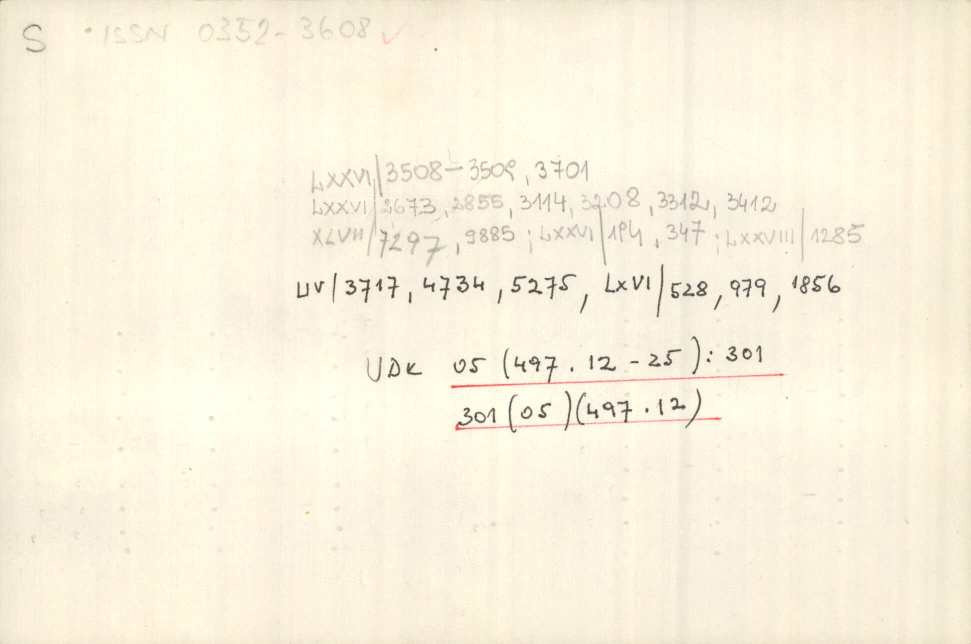 S • ISSN 0352-3608 ✓
LXXVI/3508-3509, 3701
LXXVI/2673, 2855, 3114, 3208, 3312, 3412
XLVII/7297, 9885; LXXVI/194, 347; LXXVIII/1285
LIV/3717, 4734, 5275, LXVI/528, 979, 1856
UDK 05 (497.12-25): 301
301(05)(497.12)